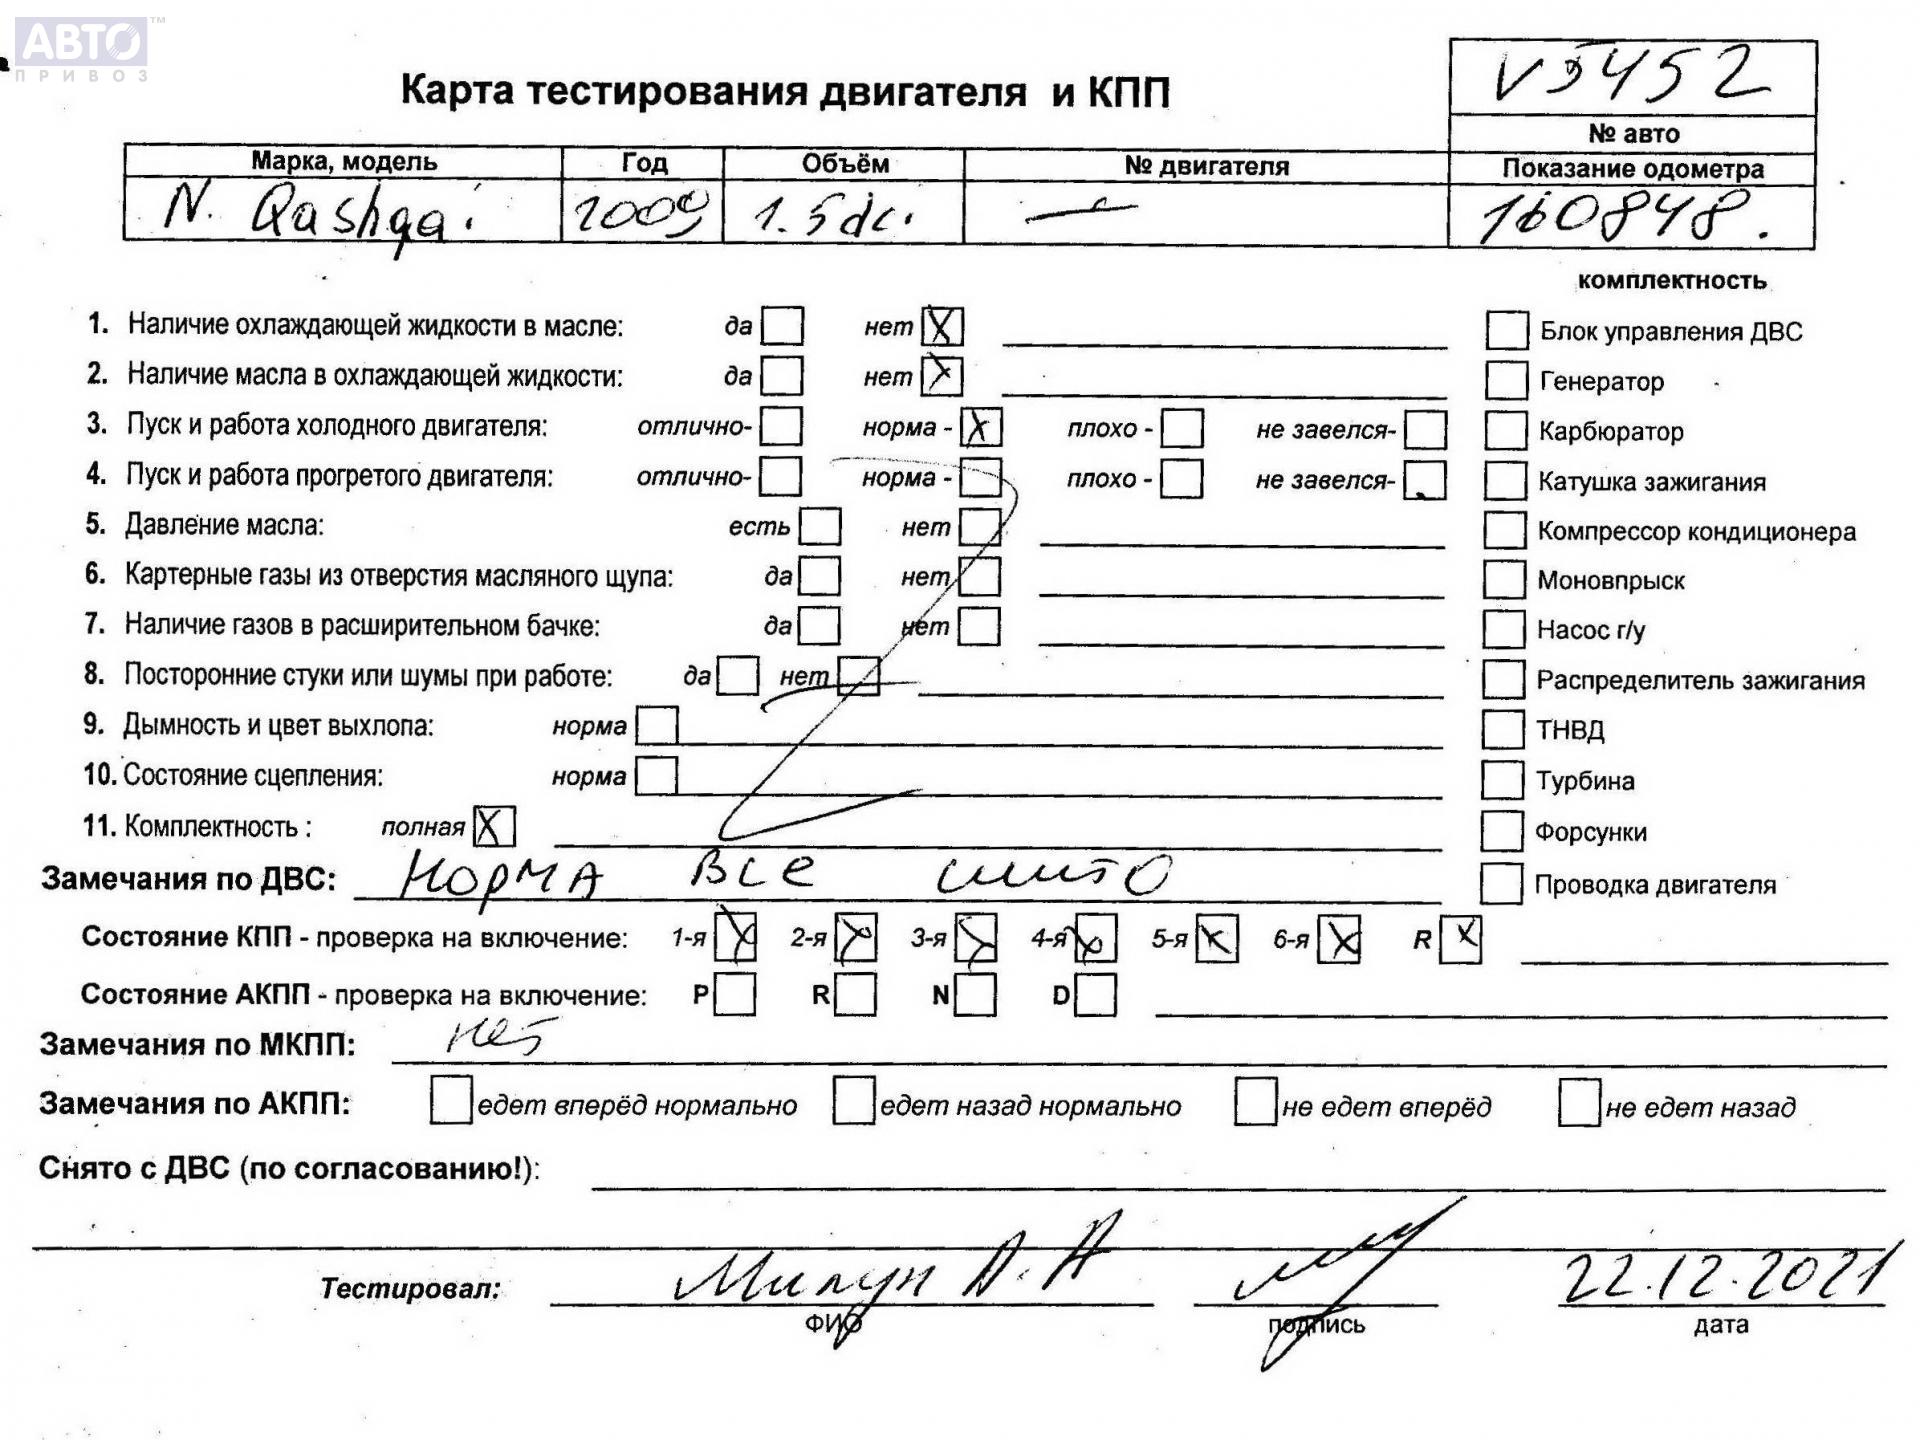 АВТО™
ПРИВОЗ
Карта тестирования двигателя и КПП
V5452
№ авто
Марка, модель Год Объём № двигателя Показание одометра
N. Qashqai 2009 1.5 dci — 160848.
комплектность
1. Наличие охлаждающей жидкости в масле: да нет X Блок управления ДВС
2. Наличие масла в охлаждающей жидкости: да нет X Генератор
3. Пуск и работа холодного двигателя: отлично- норма - X плохо - не завелся- Карбюратор
4. Пуск и работа прогретого двигателя: отлично- норма - плохо - не завелся- Катушка зажигания
5. Давление масла: есть нет Компрессор кондиционера
6. Картерные газы из отверстия масляного щупа: да нет Моновпрыск
7. Наличие газов в расширительном бачке: да нет Насос г/у
8. Посторонние стуки или шумы при работе: да нет Распределитель зажигания
9. Дымность и цвет выхлопа: норма ТНВД
10. Состояние сцепления: норма Турбина
11. Комплектность : полная X Форсунки
Замечания по ДВС: НОРМА ВСЕ Проводка двигателя
Состояние КПП - проверка на включение: 1-я X 2-я X 3-я X 4-я X 5-я X 6-я X R X
Состояние АКПП - проверка на включение: P R N D
Замечания по МКПП: нет
Замечания по АКПП: едет вперёд нормально едет назад нормально не едет вперёд не едет назад
Снято с ДВС (по согласованию!):
Тестировал: Милун А.А 22.12.2021
ФИО подпись дата